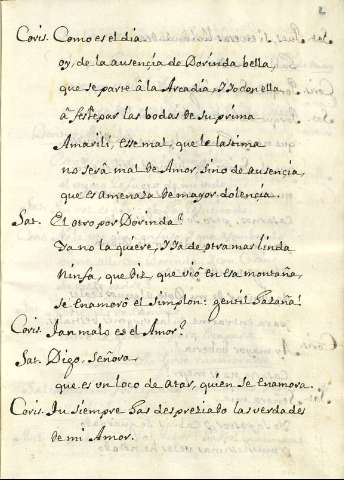 2
Coris. Como es el dia
oy, de la ausençia de Dorinda bella,
que se parte â la Arcadia, y Io con ella
â festexar las bodas de su prima
Amarili, esse mal, que le lastima
no serâ mal de Amor, sino de ausencia,
que es amenaza de mayor dolençia.
Sat. El otro por Dorinda?
Ya no la quiere, y Ia de otra mas linda
Ninfa, que diz, que viô en esa montaña,
se enamorô el simplon: gentil hazaña!
Coris. Tan malo es el Amor?
Sat. Digo, señora,
que es un loco de atar, quien se enamora.
Coris. Tu siempre has despreziado las verdades
de mi Amor.